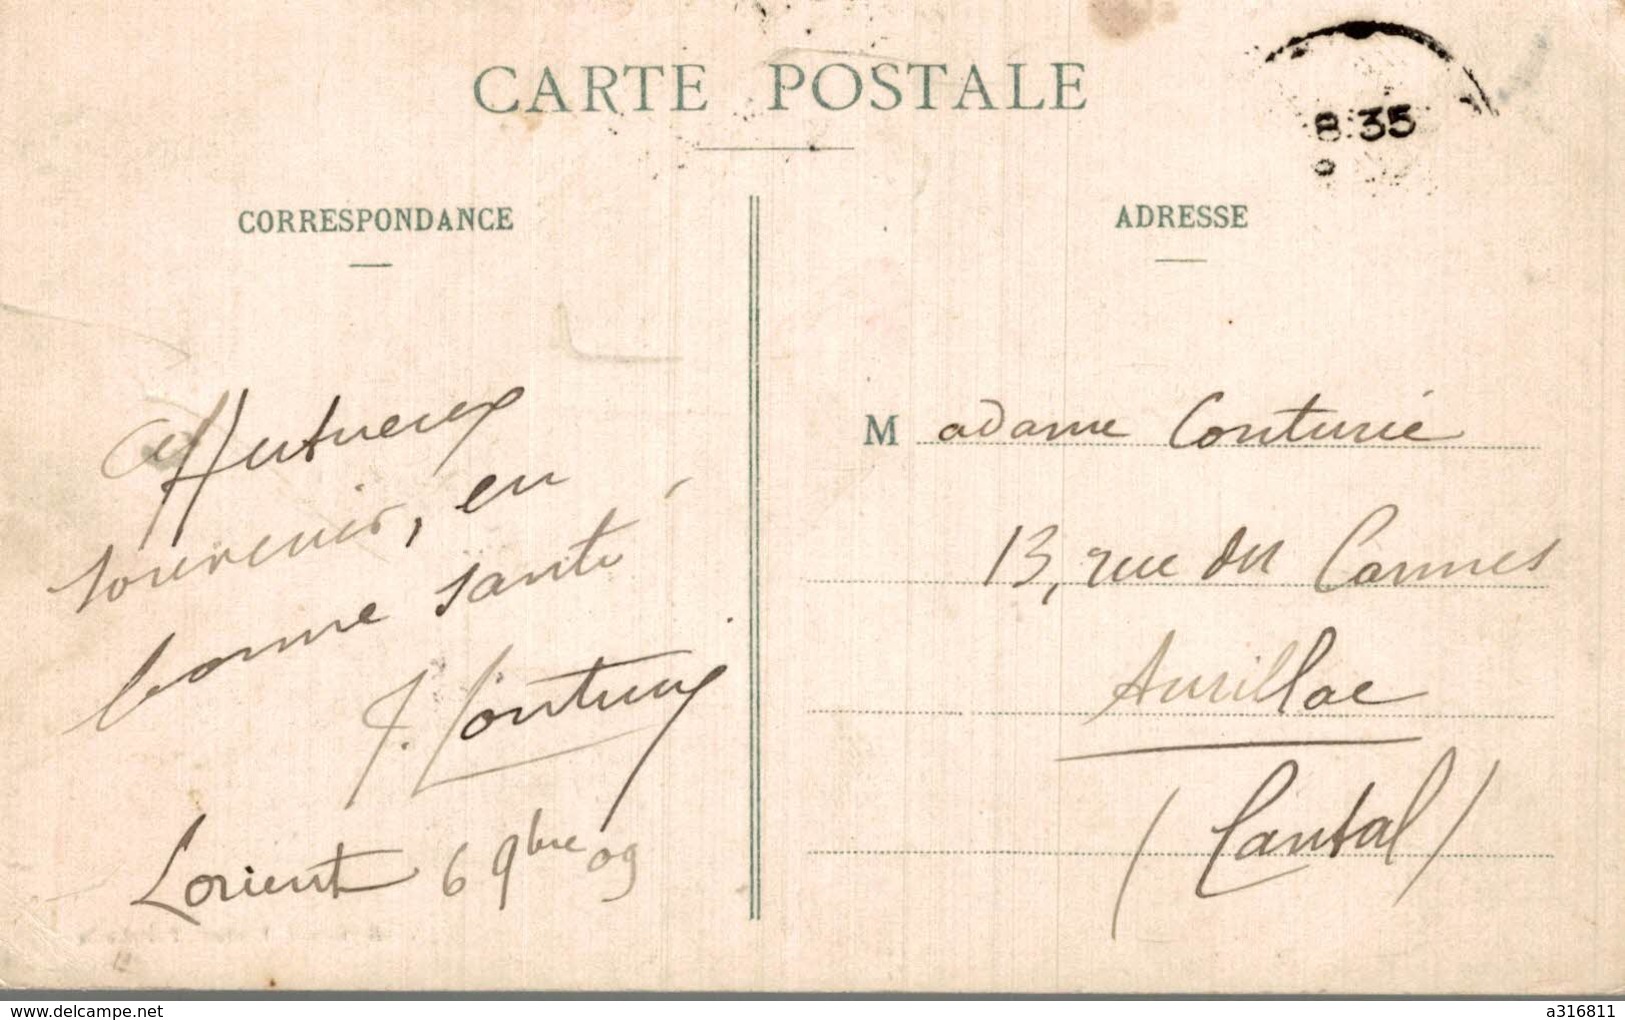 CARTE POSTALE
8 35
CORRESPONDANCE
ADRESSE
Affectueux
souvenir, en
bonne santé
J. Couturié
Lorient 6 9bre 09
Madame Couturié
13, rue du Carmes
Aurillac
(Cantal)
www.delcampe.net
a316811